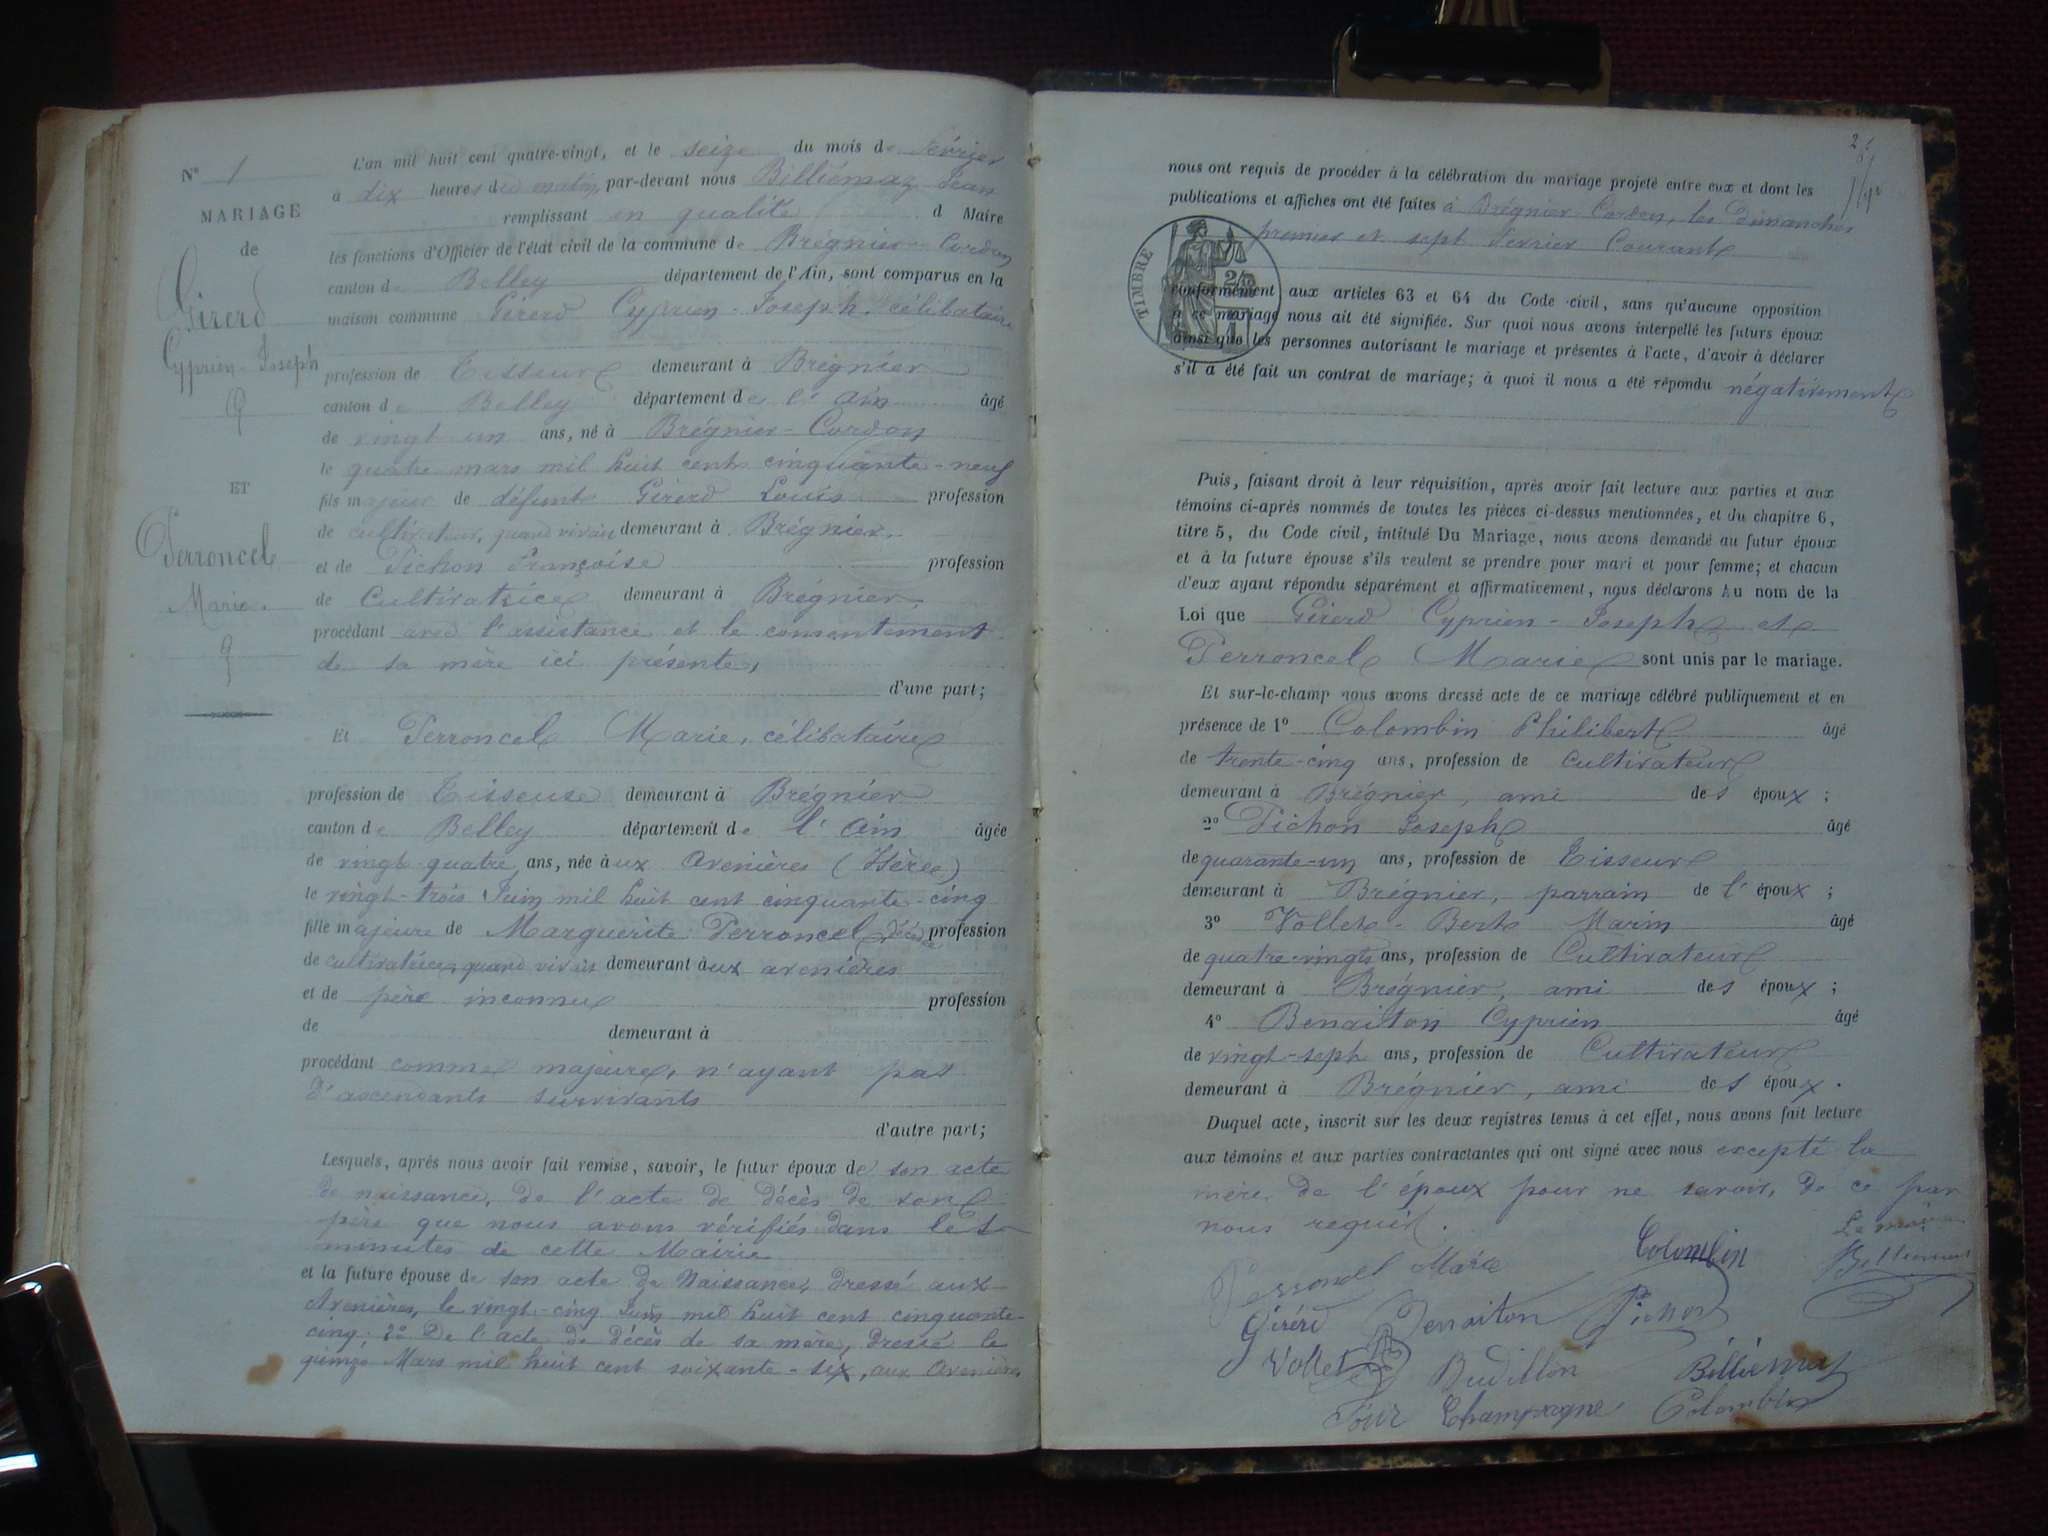 N° 1
MARIAGE
de
Girerd
Cyprien-Joseph
ET
Perroncel
Marie.
L'an mil huit cent quatre-vingt, et le seize du mois de février
à dix heures du matin, par-devant nous Billiémaz Jean
remplissant en qualité d Maire
les fonctions d'Officier de l'état civil de la commune de Brégnier-Cordon
canton de Belley département de l'Ain, sont comparus en la
maison commune Girerd Cyprien-Joseph, célibataire
profession de Tisseur demeurant à Brégnier
canton de Belley département de l'Ain âgé
de vingt un ans, né à Brégnier-Cordon
le quatre mars mil huit cent cinquante-neuf
fils majeur de défunt Girerd Louis profession
de cultivateur, quand vivait demeurant à Brégnier.
et de Pichon Françoise profession
de Cultivatrice demeurant à Brégnier,
procédant avec l'assistance et le consentement
de sa mère ici présente,
d'une part;
Et Perroncel Marie, célibataire
profession de Tisseuse demeurant à Brégnier
canton de Belley département de l'Ain âgée
de vingt-quatre ans, née àux Avenières (Isère)
le vingt-trois Juin mil huit cent cinquante-cinq
fille majeure de Marguerite Perroncel, décédée profession
de cultivatrice, quand vivait demeurant àux avenières
et de père inconnu profession
de demeurant à
procédant comme majeure, n'ayant pas
d'ascendants survivants
d'autre part;
Lesquels, après nous avoir fait remise, savoir, le futur époux de son acte
de naissance, de l'acte de décès de son
père que nous avons vérifiés dans les
minutes de cette Mairie
et la future épouse de son acte de Naissance, dressé aux
Avenières, le vingt-cinq Juin mil huit cent cinquante-
cinq. 2° De l'acte de décès de sa mère, dressé le
quinze Mars mil huit cent soixante-six, aux Avenières,
nous ont requis de procéder à la célébration du mariage projeté entre eux et dont les
publications et affiches ont été faites à Brégnier-Cordon, les dimanches
premier et sept Février Courant
TIMBRE
conformément aux articles 63 et 64 du Code civil, sans qu'aucune opposition
à ce mariage nous ait été signifiée. Sur quoi nous avons interpellé les futurs époux
ainsi que les personnes autorisant le mariage et présentes à l'acte, d'avoir à déclarer
s'il a été fait un contrat de mariage; à quoi il nous a été répondu négativement
Puis, faisant droit à leur réquisition, après avoir fait lecture aux parties et aux
témoins ci-après nommés de toutes les pièces ci-dessus mentionnées, et du chapitre 6,
titre 5, du Code civil, intitulé Du Mariage, nous avons demandé au futur époux
et à la future épouse s'ils veulent se prendre pour mari et pour femme; et chacun
d'eux ayant répondu séparément et affirmativement, nous déclarons Au nom de la
Loi que Girerd Cyprien-Joseph et
Perroncel Marie sont unis par le mariage.
Et sur-le-champ nous avons dressé acte de ce mariage célébré publiquement et en
présence de 1° Colombin Philibert âgé
de trente-cinq ans, profession de Cultivateur
demeurant à Brégnier, ami des époux;
2° Pichon Joseph âgé
de quarante-un ans, profession de Tisseur
demeurant à Brégnier, parrain de l'époux;
3° Vollet-Bert Marin âgé
de quatre-vingts ans, profession de Cultivateur
demeurant à Brégnier, ami des époux;
4° Benaiton Cyprien âgé
de vingt-sept ans, profession de Cultivateur
demeurant à Brégnier, ami des époux.
Duquel acte, inscrit sur les deux registres tenus à cet effet, nous avons fait lecture
aux témoins et aux parties contractantes qui ont signé avec nous excepté la
mère de l'époux pour ne savoir, de ce par
nous requis.
Le maire
Perroncel Marie Colombin Billiemaz
Girerd Benaiton Pichon
Vollet Budillon Billiemaz
Champagne Colombin